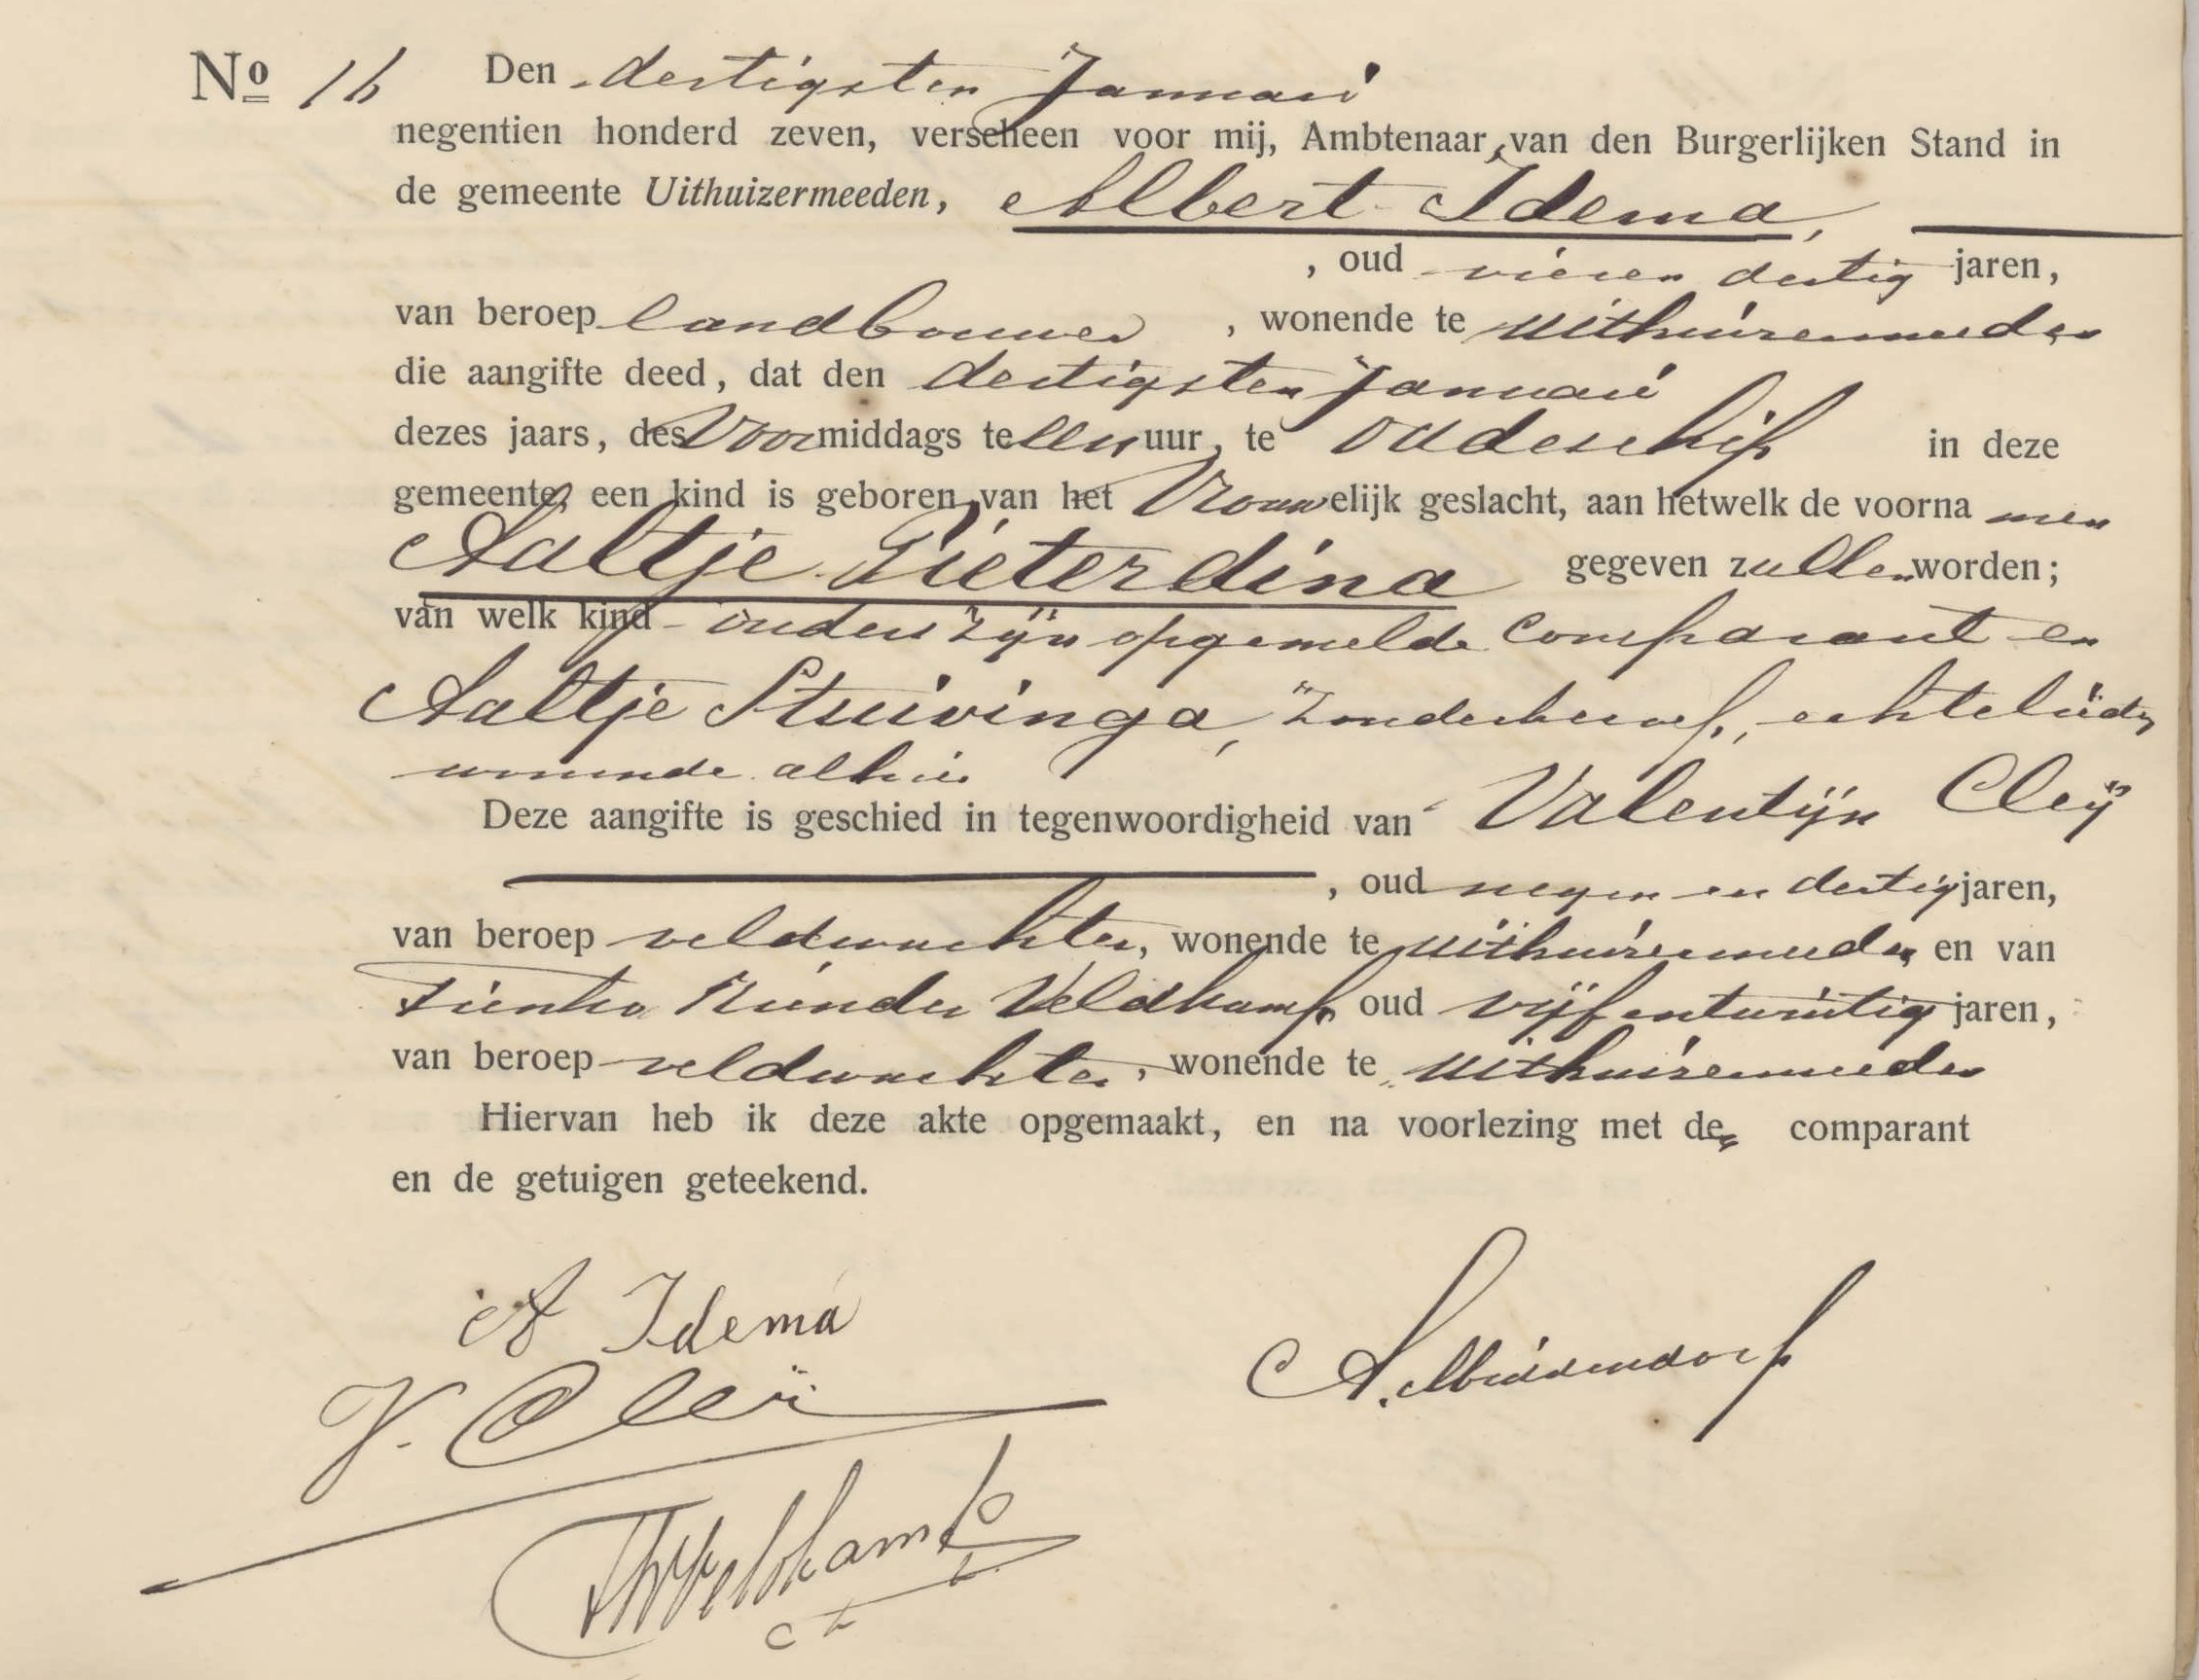 No 16 Den dertigsten Januari
negentien honderd zeven, verscheen voor mij, Ambtenaar van den Burgerlijken Stand in
de gemeente Uithuizermeeden, Albert Idema,
, oud vieren dertig jaren,
van beroep landbouwer, wonende te Uithuizermeeden
die aangifte deed, dat den dertigsten Januari
dezes jaars, des Voormiddags te elf uur, te Oudeschip in deze
gemeente, een kind is geboren van het Vrouwelijk geslacht, aan hetwelk de voornamen
Aaltje Pieterdina gegeven zullen worden;
van welk kind ouders zijn opgemelde Comparant en
Aaltje Stuivinga, zonder beroep, echtelieden
wonende alhier
Deze aangifte is geschied in tegenwoordigheid van Valentijn Cleij
, oud negen en dertig jaren,
van beroep veldwachter, wonende te Uithuizermeeden en van
Veldkamp, oud vijfentwintig jaren,
van beroep veldwachter, wonende te Uithuizermeeden
Hiervan heb ik deze akte opgemaakt, en na voorlezing met den comparant
en de getuigen geteekend.
A Idema
V. Cleij
Veldkamp